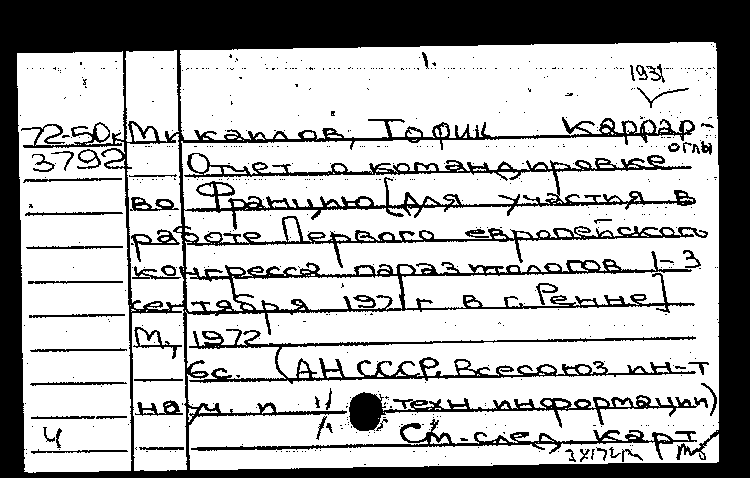 1.
1931
72-50к Микаилов, Тофик Каррар-
оглы
3792 Отчет о командировке
во Францию [для участия в
работе Первого европейского
конгресса паразитологов 1-3
сентября 1971г в г. Ренне]
М., 1972
6с. (АН СССР. Всесоюз ин-т
науч. и техн. информации)
4 См. след карт